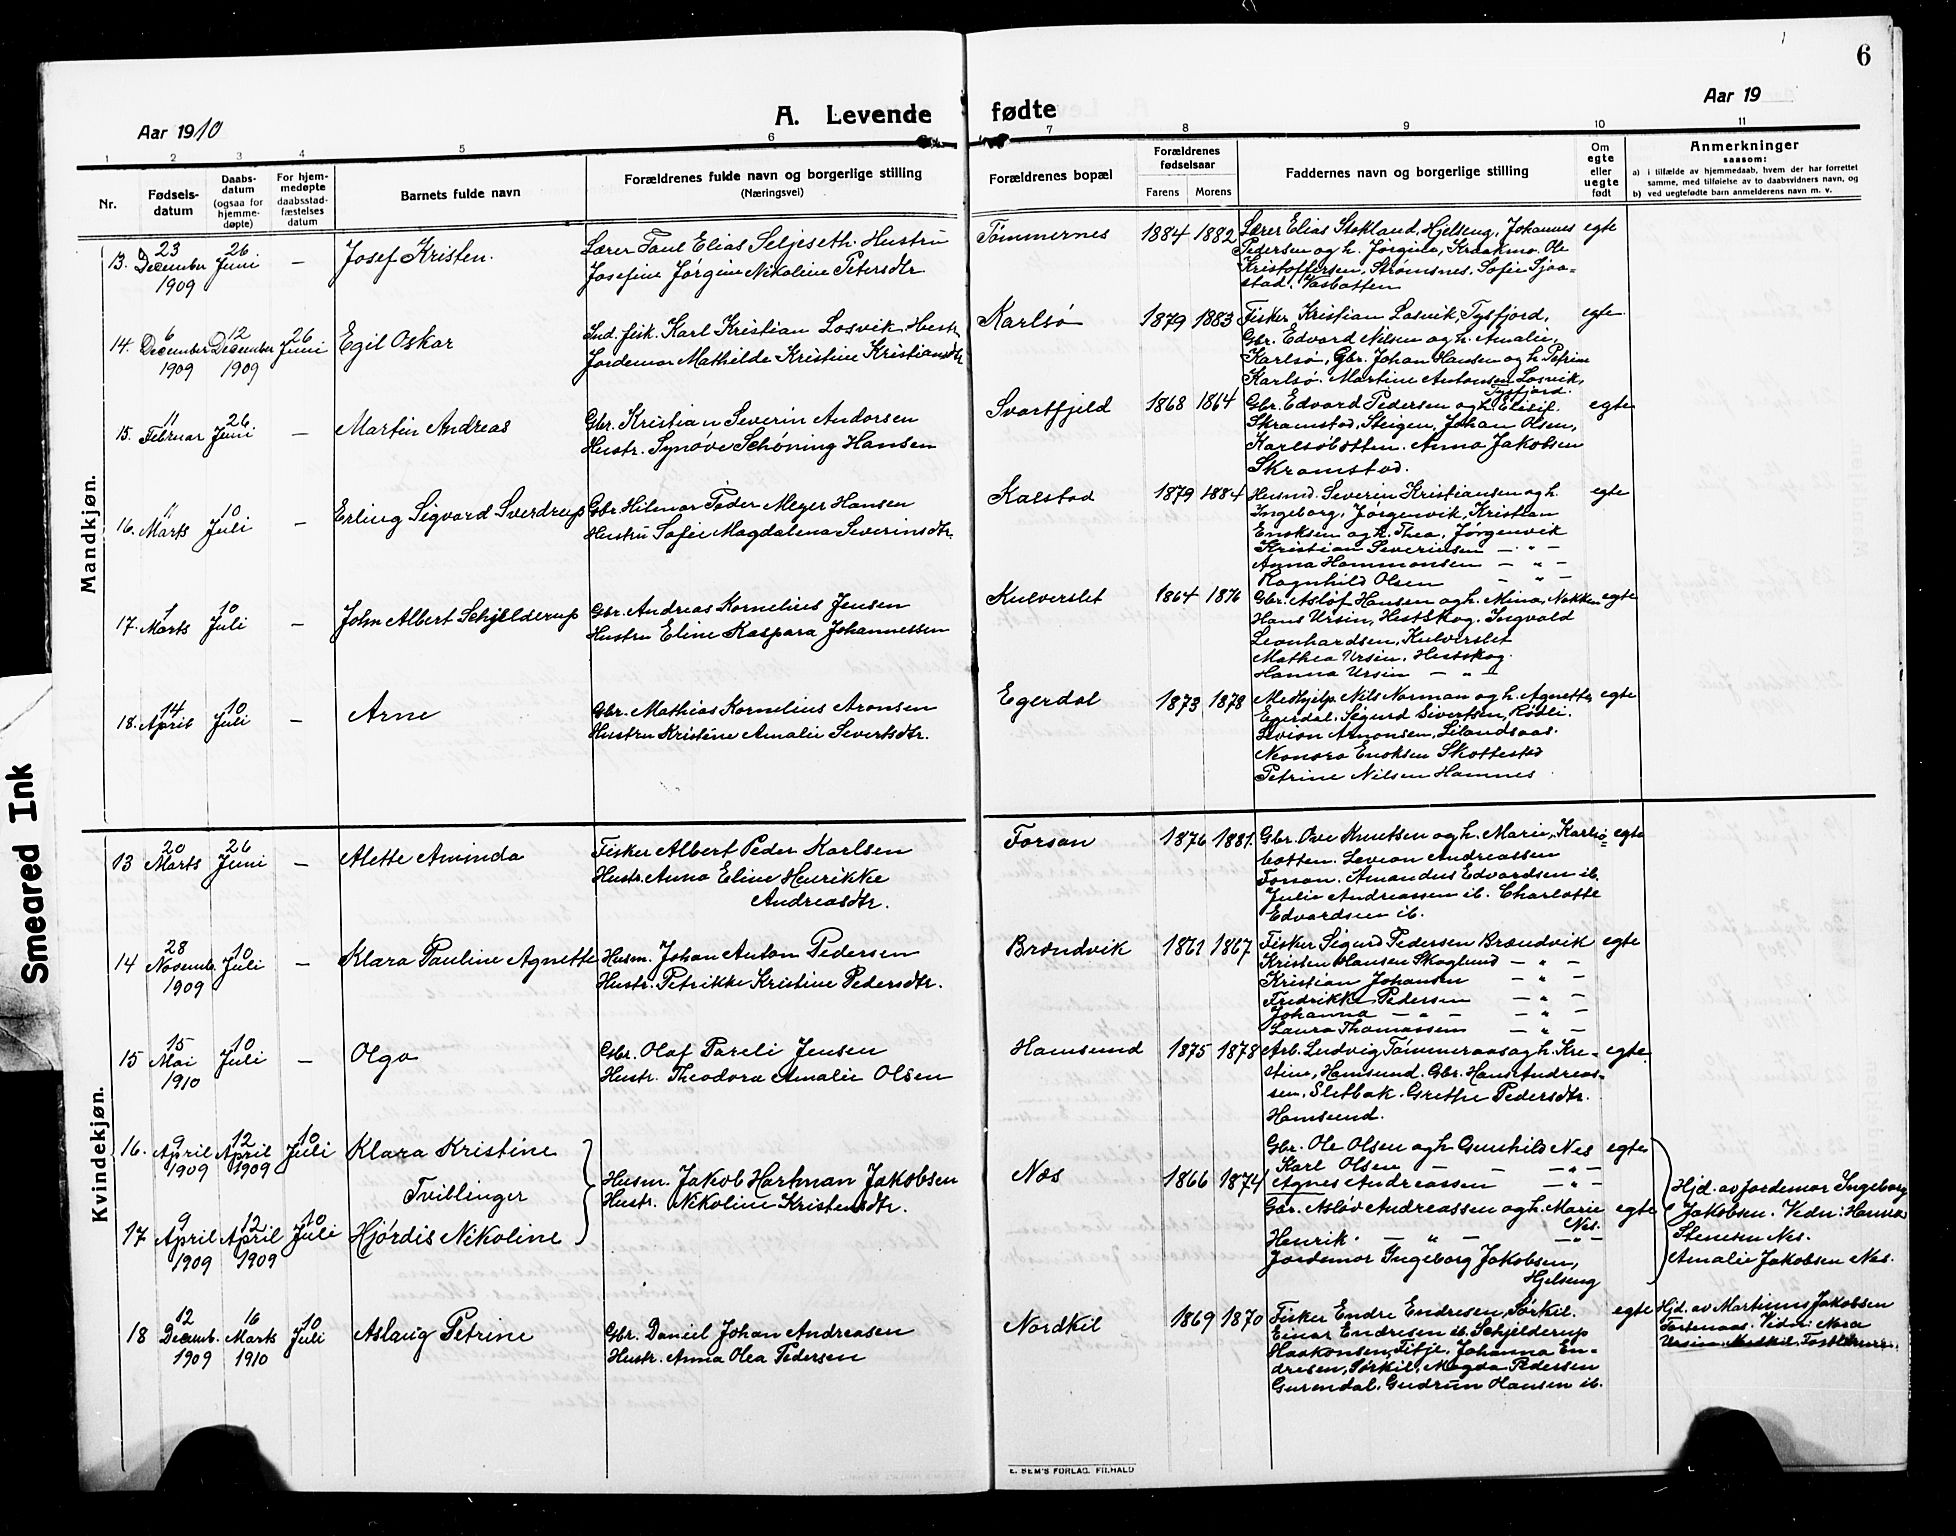 6
A. Levende fødte
Aar 1910
Aar 19
1 2 3 4 5 6 7 8 9 10 11
Nr.
Fødsels-
datum
Daabs-
datum
(ogsaa for
hjemme-
døpte)
For hjem-
medøpte
daabsstad-
fæstelses
datum
Barnets fulde navn
Forældrenes fulde navn og borgerlige stilling
(Næringsvei)
Forældrenes bopæl
Forældrenes
fødselsaar
Farens Morens
Faddernes navn og borgerlige stilling
Om
egte
eller
uegte
født
Anmerkninger
saasom:
a) i tilfælde av hjemmedaab, hvem der har forrettet
samme, med tilføielse av to daabsvidners navn, og
b) ved uegtefødte barn anmelderens navn m. v.
Mandkjøn.
13. 23 December 1909
26 Juni
—
Josef Kristen.
Lærer Paul Elias Seljeseth. Hustru
Josefine Jørgine Nikoline Petersdtr.
Tømmernes
1884 1882
Lærer Elias Stokland, Hjelseng, Johannes
Pedersen og h. Jørgine, Kraakmo. Ole
Kristoffersen, Strømsnes. Sofie Sjaa-
stad. Vasbotten
egte
14. 6 December 1909
12 December 1909
26 Juni
Egil Oskar
Ind. fisk. Karl Kristian Losvik, Hustr.
Jordemor Mathilde Kristine Kristiansdtr
Karlsø
1879 1883
Fisker Kristian Losvik, Tysfjord,
Gbr. Edvard Nilsen og h. Amalie,
Karlsø, Gbr. Johan Hansen og h. Petrine
Karlsø. Martine Antonsen Losvik,
Tysfjord.
egte
15. 11 Februar
26 Juni
—
Martin Andreas
Gbr. Kristian Severin Andorsen
Hustr. Synøve Schøning Hansen
Svartfjeld
1868 1864
Gbr. Edvard Pedersen og h. Elisif.
Skramstad, Steigen, Johan Olsen,
Karlsøbotten. Anna Jakobsen
Skramstad.
egte
16. 11 Marts
10 Juli
—
Erling Sigvard Sverdrup
Gbr. Hilmar Peder Meyer Hansen
Hustru Sofie Magdalena Severinsdtr.
Kalstad
1879 1884
Husmd. Severin Kristiansen og h.
Ingeborg, Jørgenvik, Kristian
Enoksen og h. Thea, Jørgenvik
Kristian Severinsen — " —
Anna Hammonsen — " —
Ragnhild Olsen — " —
egte
17. 1 Marts
10 Juli
—
John Albert Schjelderup
Gbr. Andreas Kornelius Jensen
Hustru Eline Kaspara Johannessen
Kulverslet
1864 1876
Gbr. Asløf Hansen og h. Mina, Nakken
Hans Ursin, Hestskog. Ingvald
Leonhardsen, Kulverslet
Mathea Ursin. Hestskog.
Hanna Ursin — " —
egte
18. 14 April
10 Juli
—
Arne
Gbr. Mathias Kornelius Aronsen
Hustru Kristine Amalie Severtsdtr.
Egerdal
1873 1878
Medhjelp. Nils Norman og h. Agnette
Egerdal. Sigurd Sivertsen, Rødli.
Levion Arnonsen, Lilandsaas.
Neonora Enoksen Skottestad
Petrine Nilsen Hamnes
egte
Kvindekjøn.
13 20 Marts
26 Juni
—
Alette Aminda
Fisker Albert Peder Karlsen
Hustr. Anna Eline Henrikke
Andreasdtr.
Forsan
1876 1881.
Gbr. Ove Knutsen og h. Marie, Karlsø-
botten. Levion Andreassen
Forsan. Amandus Edvardsen ib.
Julie Andreassen ib. Charlotte
Edvardsen ib.
egte
14 28 Novemb. 1909
10 Juli
—
Klara Pauline Agnette
Husm. Johan Anton Pedersen
Hustr. Petrikke Kristine Pedersdtr.
Brændvik
1861 1867
Fisker Sigurd Pedersen Brændvik
Kristen Hansen Skoglund — " —
Kristian Johansen — " —
Fredrikke Pedersen — " —
Johanna — " — — " —
Laura Thomassen — " —
egte
15 15 Mai 1910
10 Juli
—
Olga
Gbr. Olaf Pareli Jensen
Hustr. Theodora Amalie Olsen
Hamsund
1875 1878
Arb. Ludvig Tømmeraas og h. Kri-
stine, Hamsund. Gbr. Hans Andreas-
sen, Sletbak. Grethe Pedersdtr.
Hamsund.
egte
16. 9 April 1909
12 April 1909
10 Juli
Klara Kristine
Tvillinger
17 9 April 1909
12 April 1909
10 Juli
Hjørdis Nikoline
Husm. Jakob Hartman Jakobsen
Hustr. Nikoline Kristensdtr.
Næs
1866 1874
Gbr. Ole Olsen og h. Gunhild Nes
Karl Olsen — — — " —
Agnes Andreassen — " —
Gbr. Asløv Andreassen og h. Marie
Nes.
Henrik. — " — — " —
Jordemor Ingeborg Jakobsen,
Hjelseng
egte
egte
Hjd. av Jordemor Ingeborg
Jakobsen. Vidn: Hanna
Stensen Nes.
Amalie Jakobsen Nes.
18 12 Decemb. 1909
16 Marts 1910
10 Juli
Aslaug Petrine
Gbr. Daniel Johan Andreasen
Hustr. Anna Olea Pedersen
Nordkil
1869 1870
Fisker Endre Endresen, Sørkil.
Einar Endresen ib. Schjelderup
Haakonsen, Fitje. Johanna En-
dresen, Sørkil, Magda Pedersen
Gurendal. Gudrun Hansen ib.
egte
Hjd. av Martinus Jakobsen
Vidn: Nora
Ursin, Nordkil,
E. SEM'S FORLAG, F.HALD
Smeared Ink